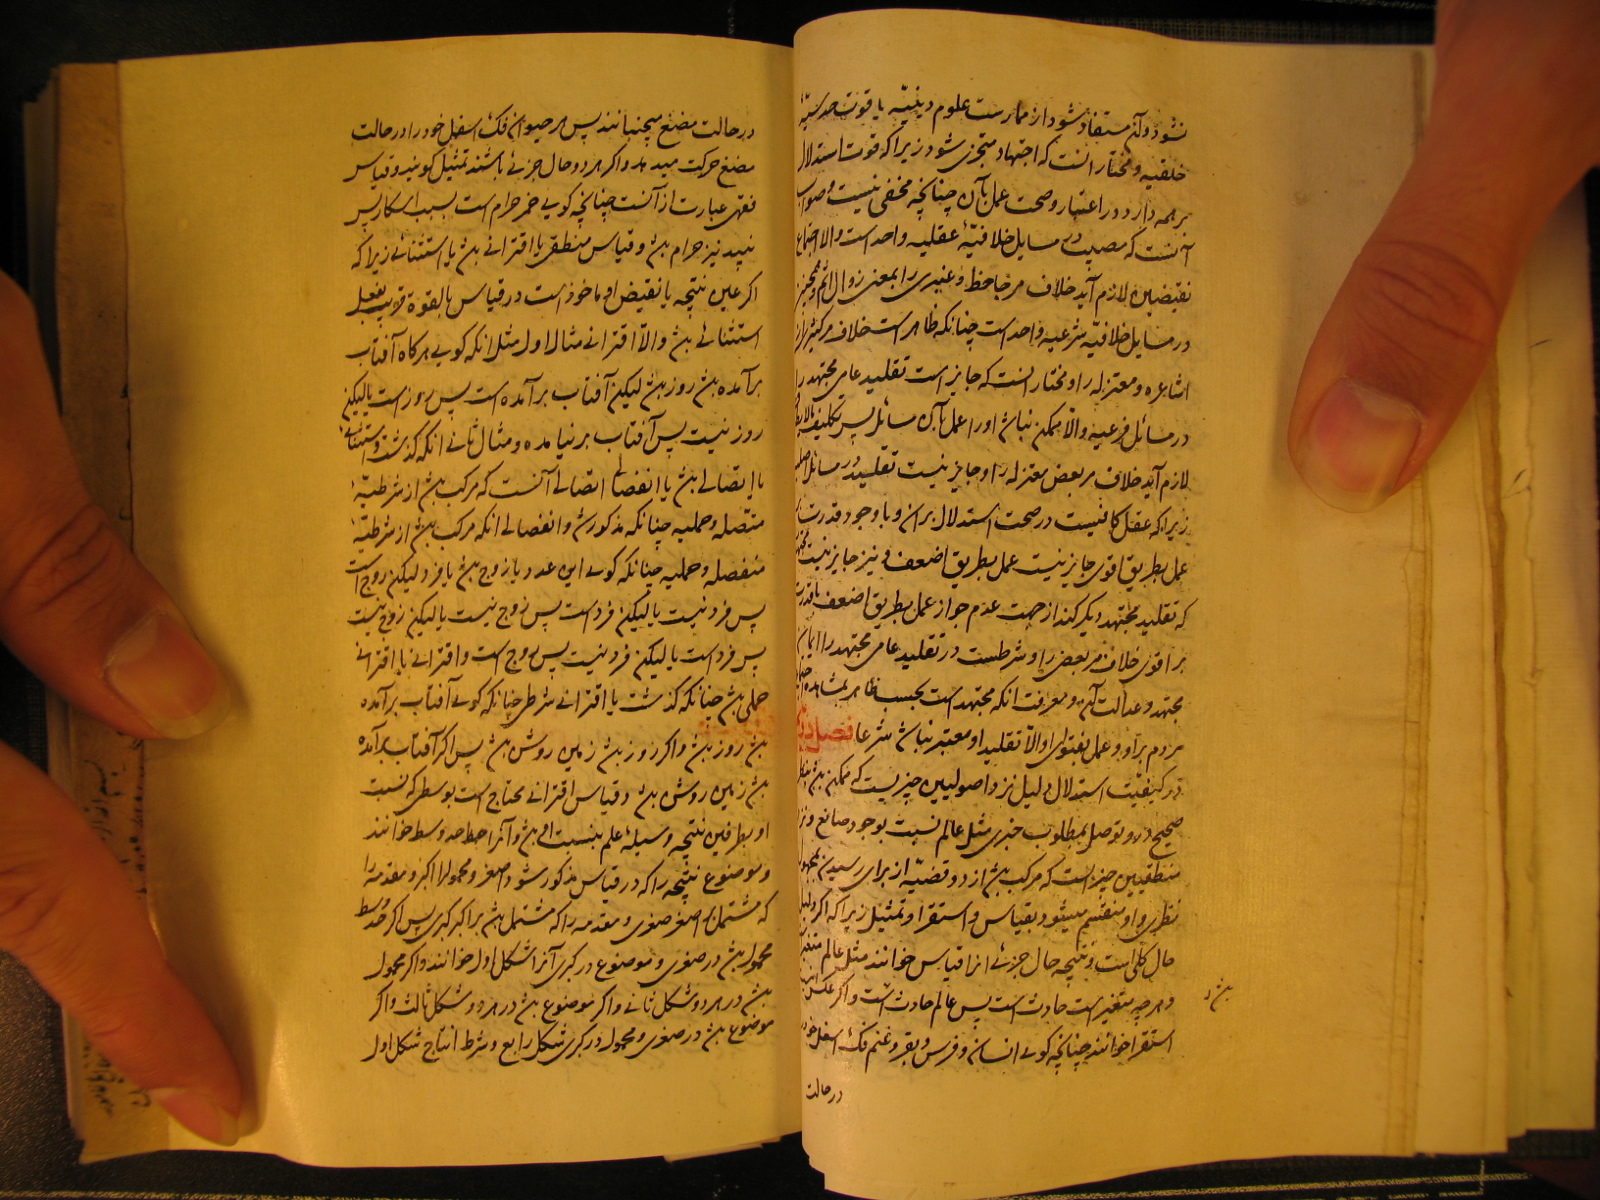 نشود و آن مستفاد شود از ممارست علوم دینیه یا قوت حدسیه
خلقیه و مختار آنست که اجتهاد متجزی شود زیرا که قوت استدلال
بر همه دارد در اعتبار و صحت عمل بآن چنانچه مخفی نیست و صواب
آنست که مصیب در مسایل خلافیهٔ عقلیه واحد است والا اجتماع
نقیضین لازم آید خلاف مر جاحظ و عنبری را بمعنی زوال اثم
در مسایل خلافیه شرعیه واحد است چنانکه ظاهر است خلاف مر
اشاعره و معتزله را و مختار آنست که جایز است تقلید عامی مجتهد را
در مسائل فرعیه والا ممکن نباشد او را عمل بآن مسائل پس تکلیف
لازم آید خلاف مر بعض معتزله را و جایز نیست تقلید در مسائل
زیرا که عقل کافیست در صحت استدلال بران و با وجود قدرت
عمل بطریق اقوی جایز نیست عمل بطریق اضعف و نیز جایز نیست
که تقلید مجتهد دیگر کند از جهت عدم جواز عمل بطریق اضعف با قدرت
بر اقوی خلاف مر بعض را و شرطست در تقلید عامی مجتهد را ایمان
مجتهد و عدالت آن و معرفت آنکه مجتهد است بحسب ظاهر بمشاهده
مردم بر او و عمل بفتوی او والا تقلید او معتبر نباشد شرعا فصل
در کیفیت استدلال دلیل نزد اصولیین چیزیست که ممکن بشد
صحیح درو توصل بمطلوب خبری مثل عالم نسبت بوجود صانع و نزد
منطقیین چیزیست که مرکب بشد از دو قضیه از برای رسیدن بمجهول
نظری و او منقسم میشود بقیاس و استقرا و تمثیل زیرا که اگر دلیل
حال کلی است و نتیجه حال جزئی انرا قیاس خوانند مثل عالم متغیر
و هر چه متغیر است حادث است پس عالم حادث است و اگر عکس
بشد
استقرا خوانند چنانچه گوئی انسان و فرس و بقر و غنم فک اسفل
در حالت
در حالت مضغ میجنبانند پس هر حیوان فک اسفل خود را در حالت
مضغ حرکت میدهد و اگر هر دو حال جزئی باشند تمثیل گویند و قیاس
فقهی عبارت از آنست چنانچه گویی خمر حرام است بسبب اسکار پس
نبیذ نیز حرام بشد و قیاس منطقی یا اقترانی بشد یا استثنائی زیرا که
اگر عین نتیجه یا نقیض او ماخوذ است در قیاس بالقوة قریب بفعل
استثنائی بشد والا اقترانی مثال اول مثل انکه گویی هرگاه آفتاب
برآمده بشد روز بشد لیکن آفتاب برآمده است پس روز است یا لیکن
روز نیست پس آفتاب برنیامده و مثال ثانی انکه گذشت و استثنائی
یا اتصالی بشد یا انفصالی اتصالی آنست که مرکب بشد از شرطیهٔ
متصله و حملیه چنانکه مذکور شد و انفصالی انکه مرکب بشد از شرطیهٔ
منفصله و حملیه چنانکه گوئی این عدد یا زوج بشد یا فرد لیکن زوج است
پس فرد نیست یا لیکن فرد است پس زوج نیست یا لیکن زوج نیست
پس فرد است یا لیکن فرد نیست پس زوج است و اقترانی یا اقترانی
حملی بشد چنانکه گذشت یا اقترانی شرطی چنانکه گوئی آفتاب برآمده
بشد روز بشد و اگر روز بشد زمین روشن بشد پس اگر آفتاب برآمده
بشد زمین روشن بشد و قیاس اقترانی محتاج است بوسطی که نسبت
او بطرفین نتیجه وسیلهٔ علم بنسبت او بشد و آنرا حد وسط خوانند
و موضوع نتیجه را که در قیاس مذکور شود اصغر و محمول را اکبر و مقدمه را
که مشتمل بر اصغر صغری و مقدمه را که مشتمل بشد بر اکبر کبری پس اگر حد وسط
محمول بشد در صغری و موضوع در کبری آنرا شکل اول خوانند و اگر محمول
بشد در هر دو شکل ثانی و اگر موضوع بشد در هر دو شکل ثالث و اگر
موضوع بشد در صغری و محمول در کبری شکل رابع و شرط انتاج شکل اول